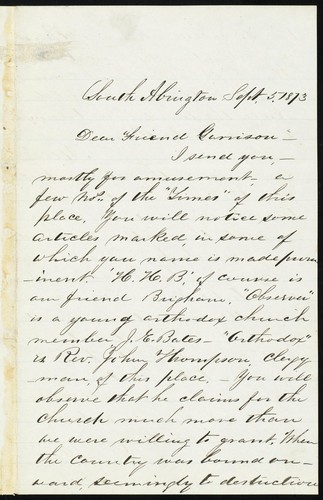 South Abington Sept. 5, 1873
Dear Friend Garrison —
I send you, —
mostly for amusement — a
few Nos. of the "Times" of this
place. You will notice some
articles marked, in some of
which you name is made prom
-inent. 'H. H. B,' of course is
our friend Brigham. "Observer"
is a young orthodox church
member, J. E. Bates — "Orthodox"
is Rev. John Thompson, clergy
man, of this place. — You will
observe that he claims for the
church much more than
we were willing to grant. When
the country was bound on-
ward, seemingly to destruction